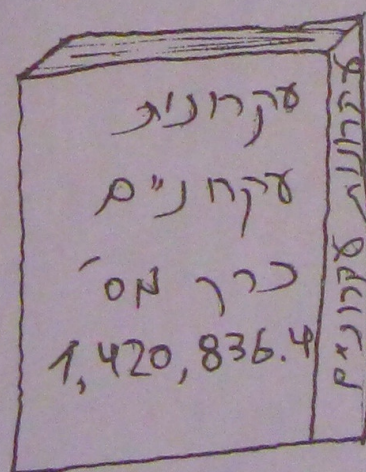 עקרונות
עקרוניים
כרך מס'
1,420,836.4
עקרונות עקרוניים